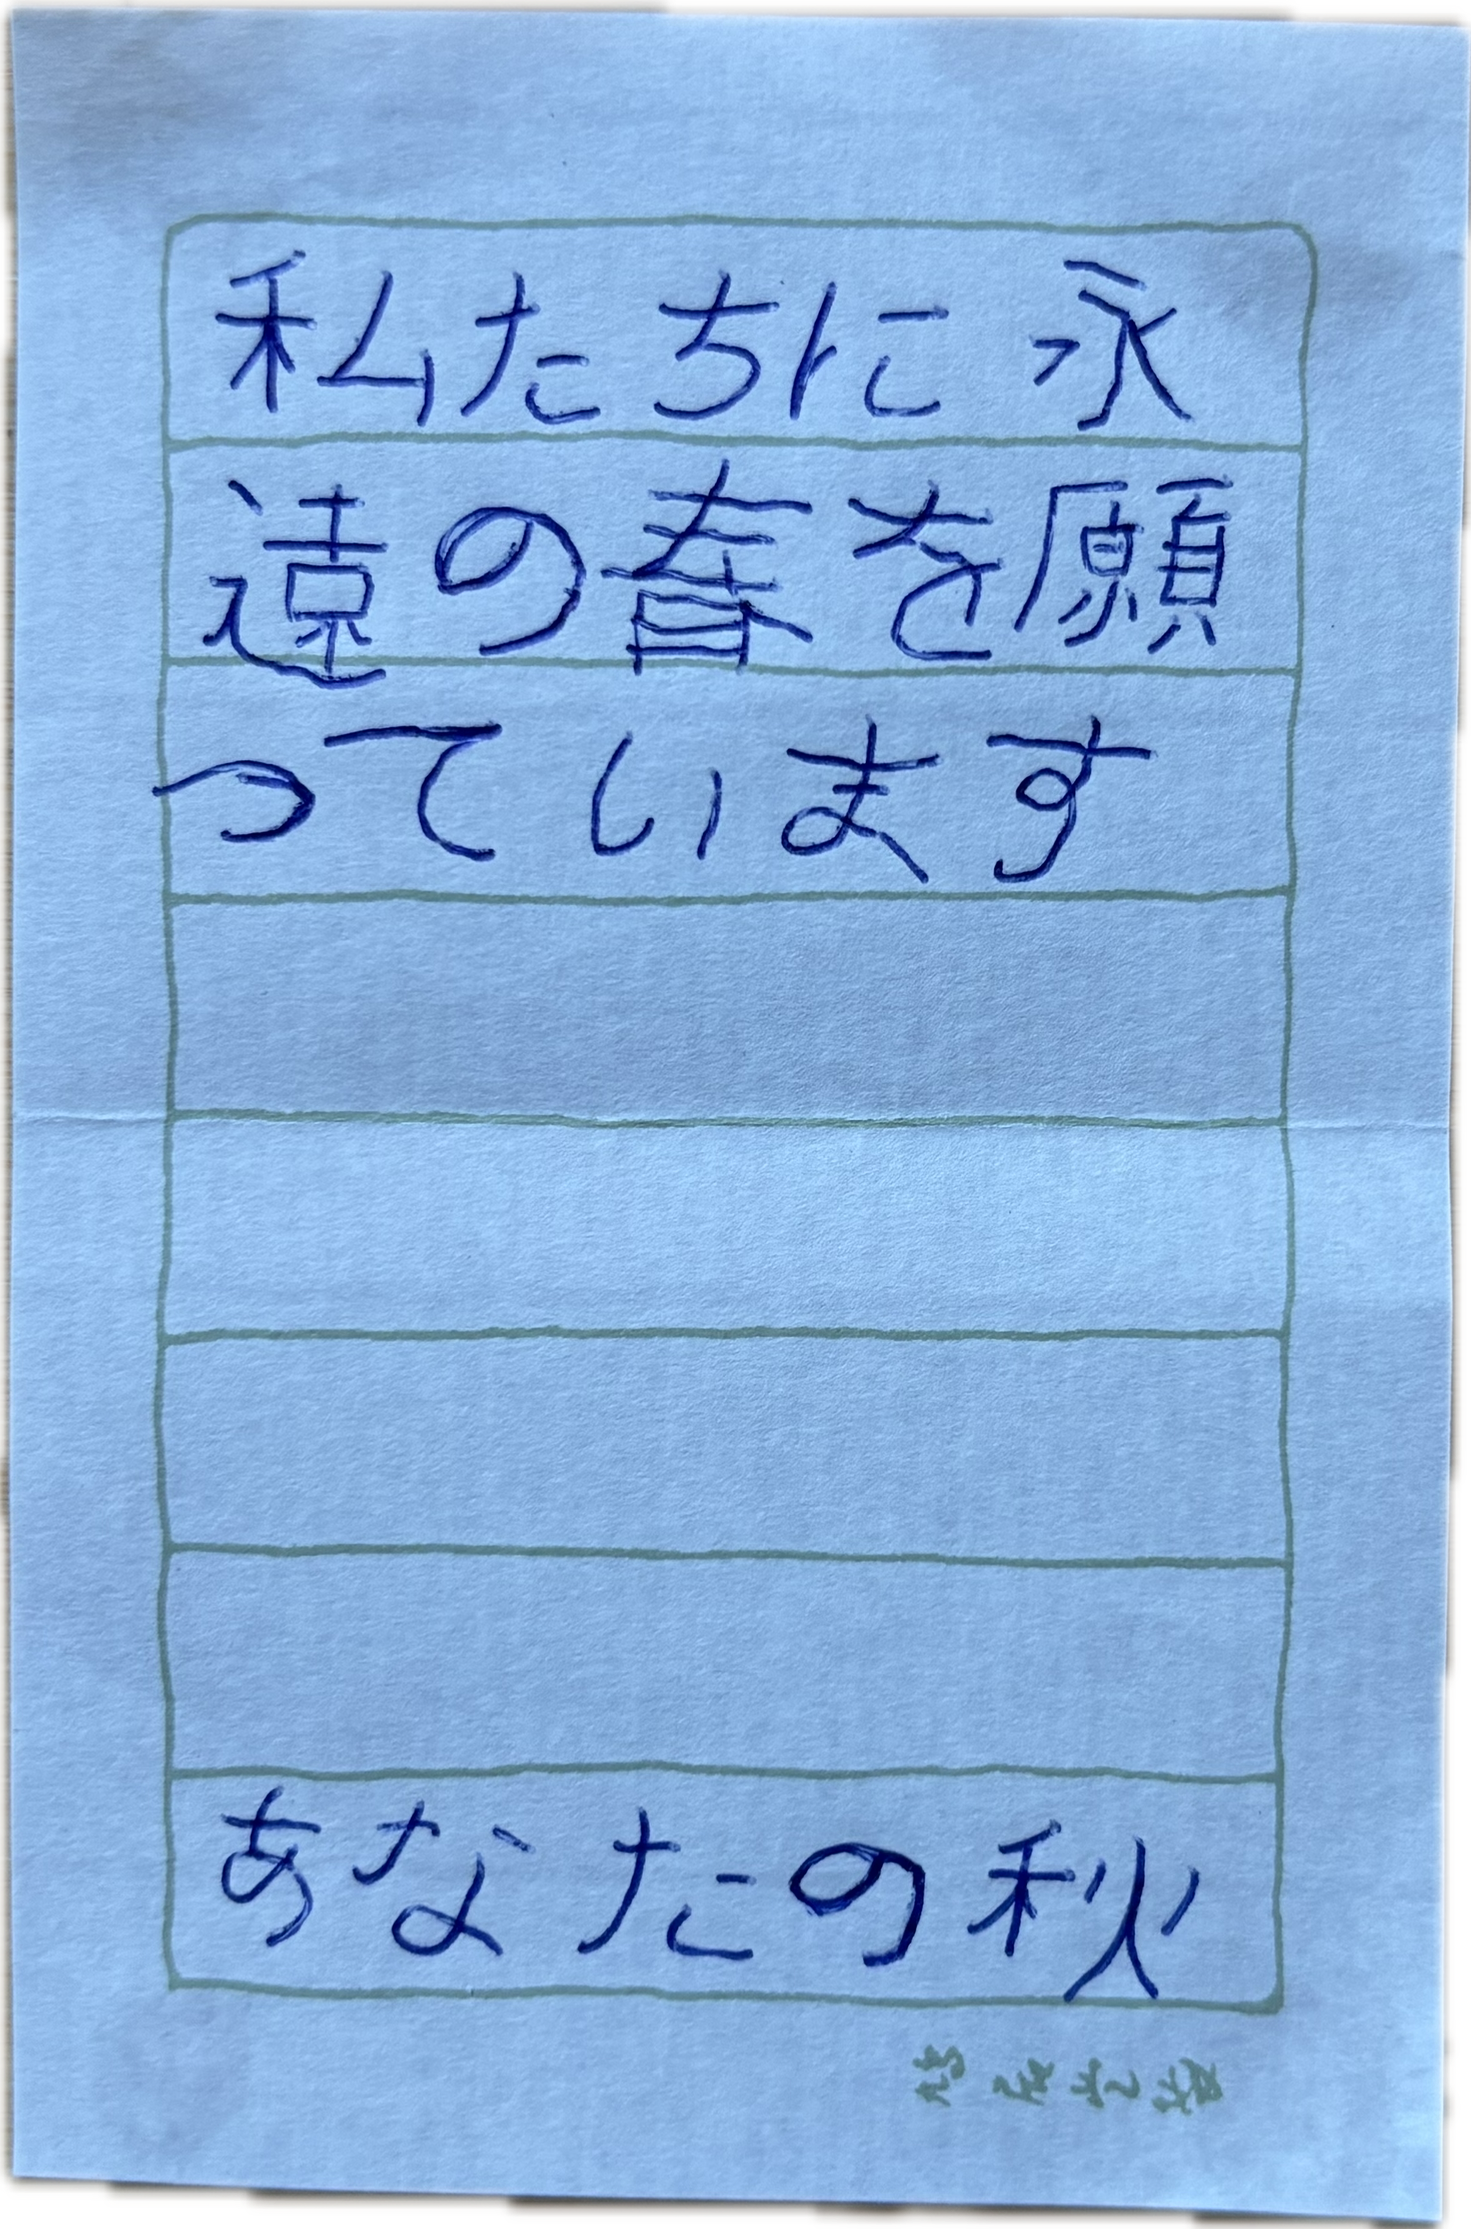 私たちに永
遠の春を願
っています
あなたの秋